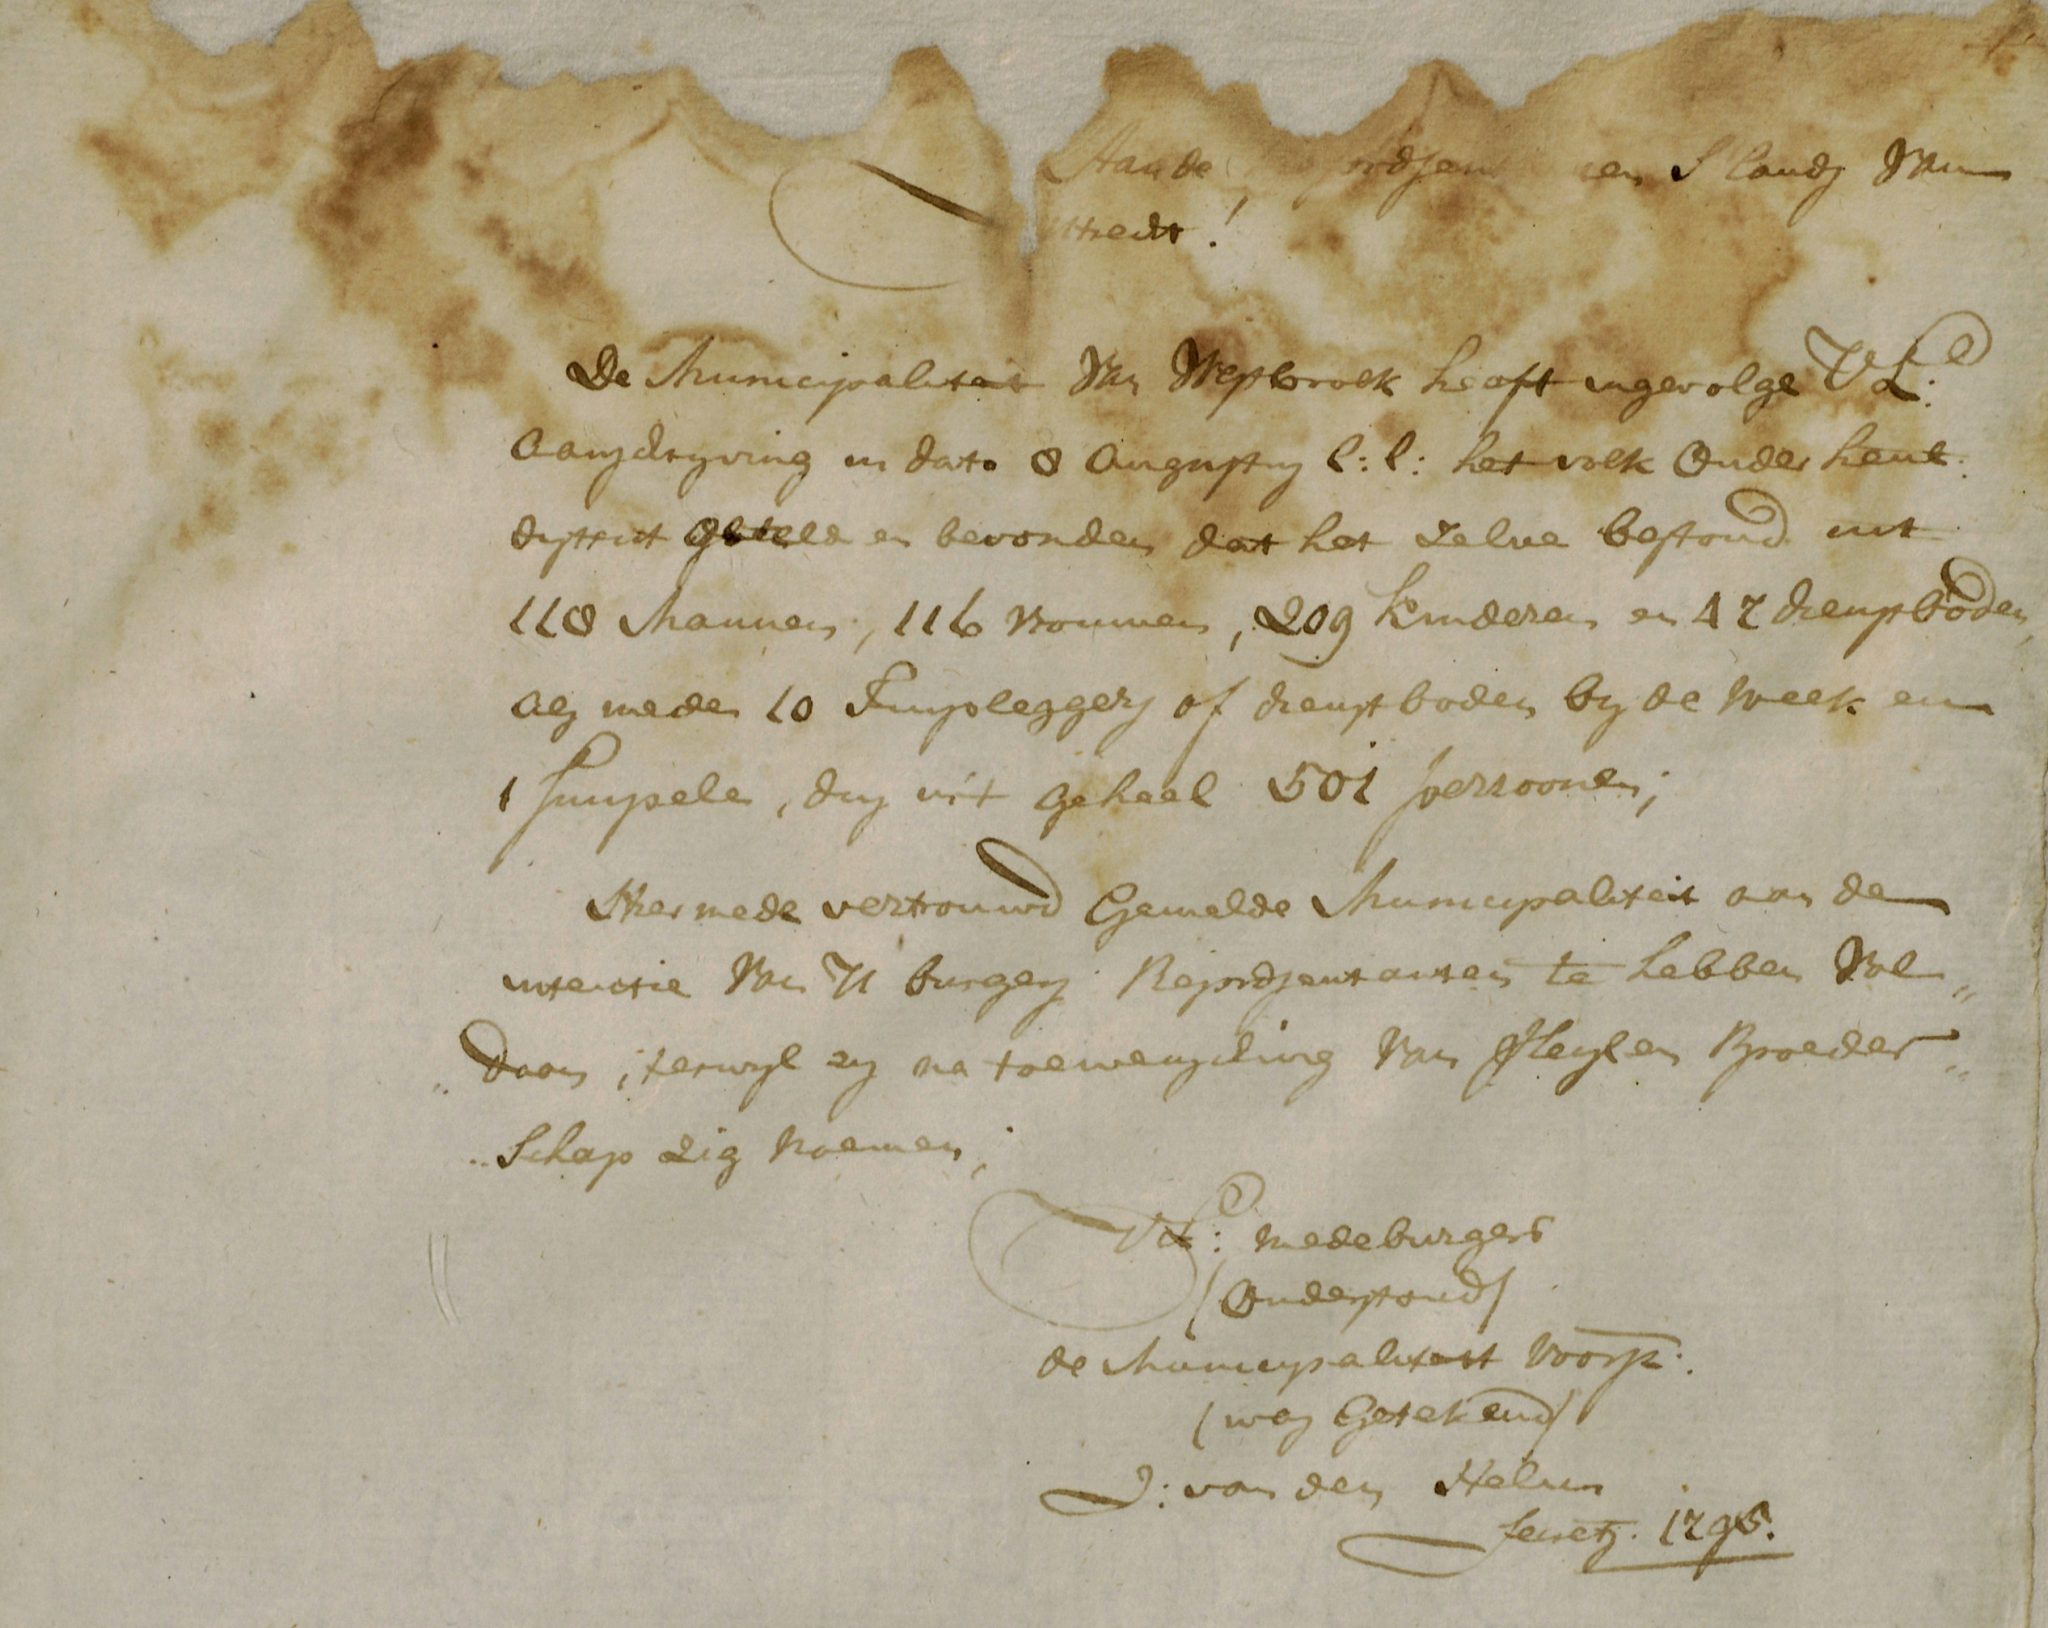 Aan de
s Lands van
trecht!
De Municipaliteit van Westbroek heeft ingevolge UL:
aanschryving in dato 8 augustus l:l: het volk onder heul:
district geteld en bevonden dat het zelve bestond uit
118 Mannen, 116 vrouwen, 209 kinderen en 47 dienstboden,
als meden 10 Kuypleggers of dienstboden by de week en
1 simpele, dus uit geheel 501 persoonen;
Hier mede vertrouwd Gemelde Municipaliteit aan de
intentie van U burgers Repræsentanten te hebben vol„
„daan, terwyl zy na toewensching van Heyl en Broeder„
„schap zig noemen;
UL: medeburgers
(onderstond)
de Municipaliteit voorsz:
(was Getekend)
J: van den Helm
Secrets. 1795.